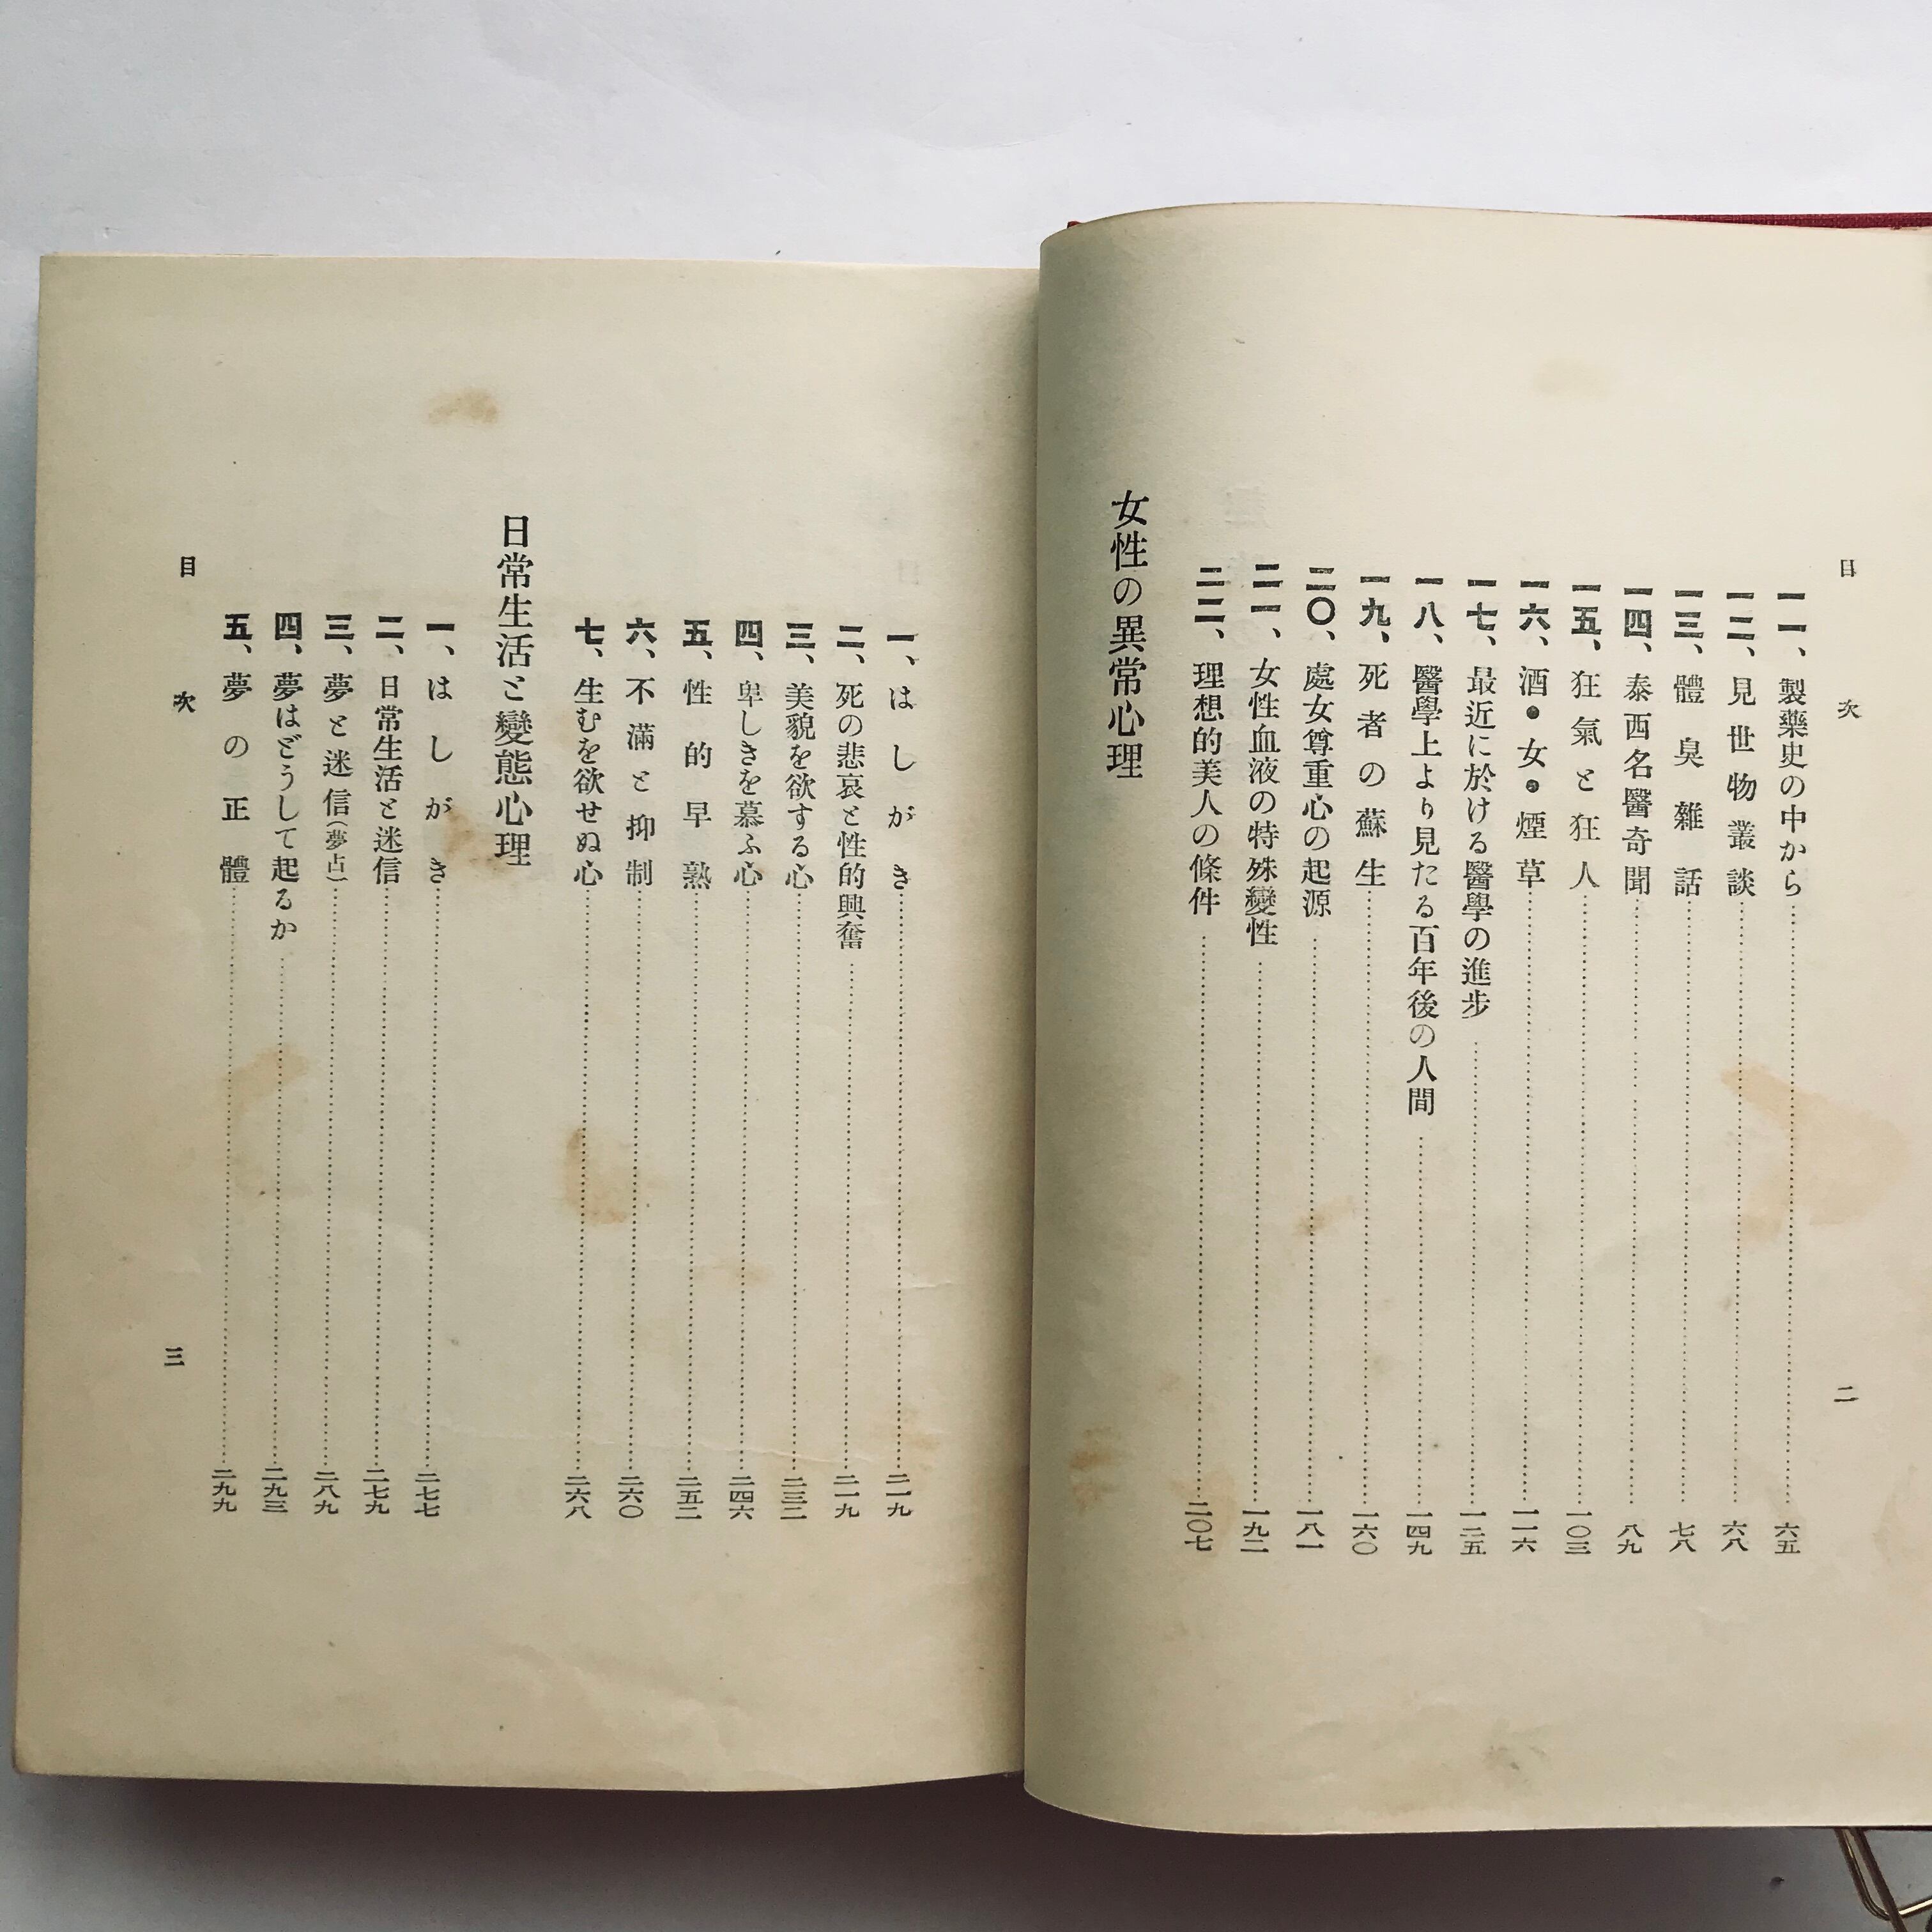 目次
二
一一、製藥史の中から……六五
一二、見世物叢談……六八
一三、體臭雜話……七八
一四、泰西名醫奇聞……八九
一五、狂氣と狂人……一〇三
一六、酒●女●煙草……一一六
一七、最近に於ける醫學の進步……一二五
一八、醫學上より見たる百年後の人間……一四九
一九、死者の蘇生……一六〇
二〇、處女尊重心の起源……一八一
二一、女性血液の特殊變性……一九二
二二、理想的美人の條件……二〇七
女性の異常心理
一、はしがき……二一九
二、死の悲哀と性的興奮……二一九
三、美貌を欲する心……二三二
四、卑しきを慕ふ心……二四六
五、性的早熟……二五二
六、不滿と抑制……二六〇
七、生むを欲せぬ心……二六八
日常生活と變態心理
一、はしがき……二七七
二、日常生活と迷信……二七九
三、夢と迷信(夢占)……二八九
四、夢はどうして起るか……二九三
五、夢の正體……二九九
目次
三